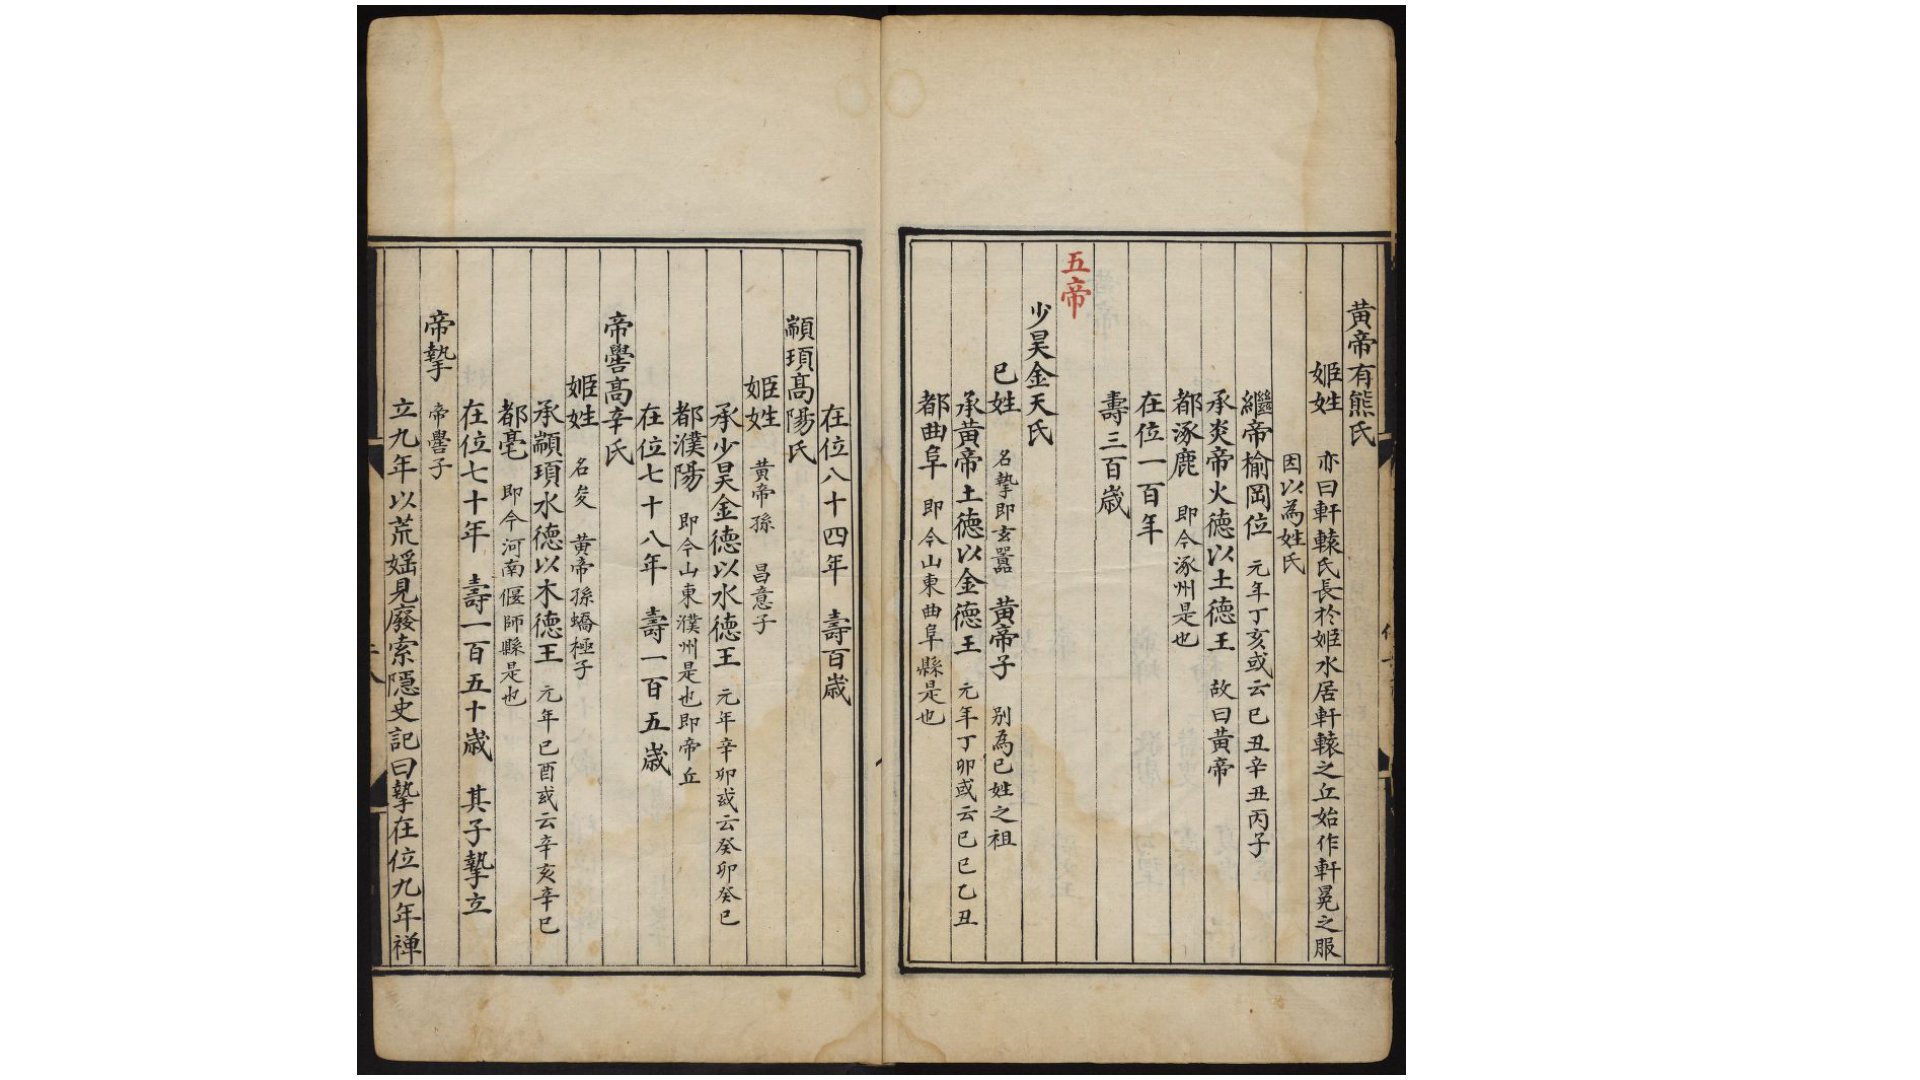 黃帝有熊氏
姬姓 亦曰軒轅氏長於姬水居軒轅之丘始作軒冕之服
因以為姓氏
繼帝榆岡位 元年丁亥或云己丑辛丑丙子
承炎帝火德以土德王 故曰黃帝
都涿鹿 即今涿州是也
在位一百年
壽三百歲
五帝
少昊金天氏
已姓 名摯即玄囂 黃帝子 別為已姓之祖
承黃帝土德以金德王 元年丁卯或云已已乙丑
都曲阜 即今山東曲阜縣是也
在位八十四年 壽百歲
顓頊高陽氏
姬姓 黃帝孫 昌意子
承少昊金德以水德王 元年辛卯或云癸卯癸巳
都濮陽 即今山東濮州是也即帝丘
在位七十八年 壽一百五歲
帝嚳高辛氏
姬姓 名夋 黃帝孫蟜極子
承顓頊水德以木德王 元年已酉或云辛亥辛巳
都亳 即今河南偃師縣是也
在位七十年 壽一百五十歲 其子摯立
帝摯 帝嚳子
立九年以荒婬見廢索隱史記曰摯在位九年禅